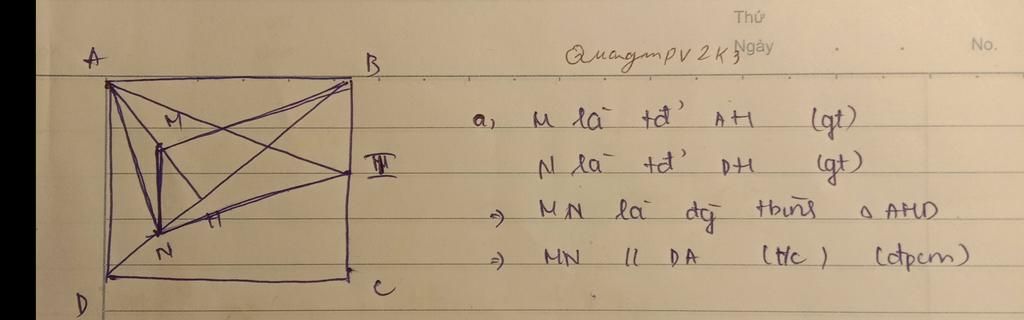 Thứ
Ngày
No.
QuangmPV2k3
A
B
M
I
H
N
D
C
a, M là tđ' AH (gt)
N là tđ' DH (gt)
=> MN là đg tbình △ AHD
=> MN // DA (t/c) (đpcm)